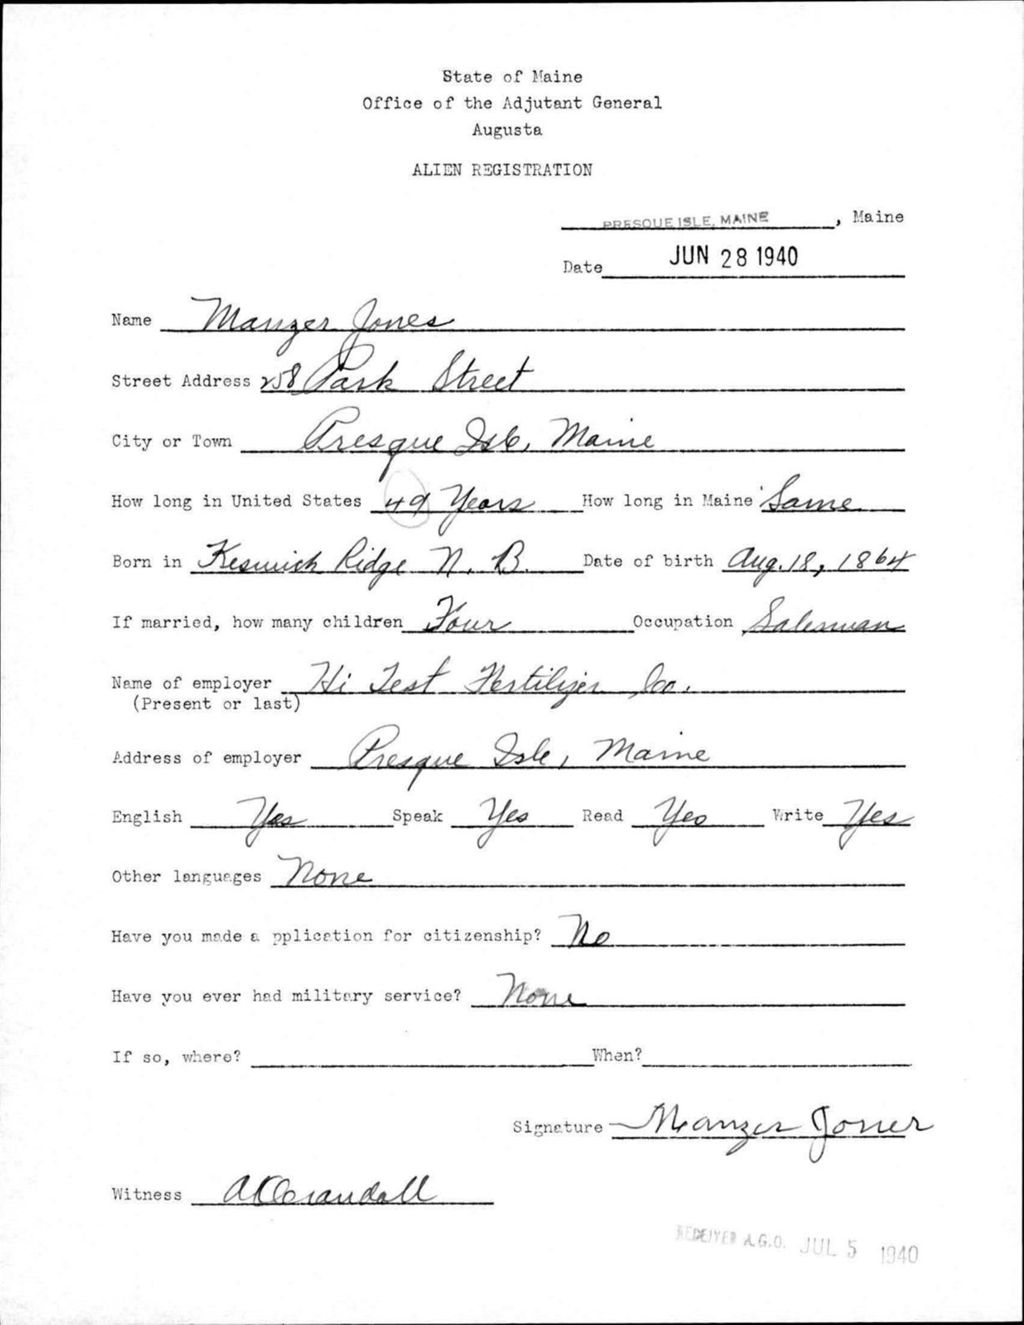 State of Maine
Office of the Adjutant General
Augusta
ALIEN REGISTRATION
PRESQUE ISLE, MAINE, Maine
Date JUN 28 1940
Name Manzer Jones
Street Address 258 Park Street
City or Town Presque Isle, Maine
How long in United States 49 Years How long in Maine Same
Born in Keswick Ridge N. B. Date of birth Aug. 18, 1864
If married, how many children Four Occupation Salesman
Name of employer Hi Test Fertilizer Co.
(Present or last)
Address of employer Presque Isle, Maine
English Yes Speak Yes Read Yes Write Yes
Other languages None
Have you made a pplication for citizenship? No
Have you ever had military service? None
If so, where? When?
Signature Manzer Jones
Witness Crandall
RECEIVED A.G.O. JUL 5 1940